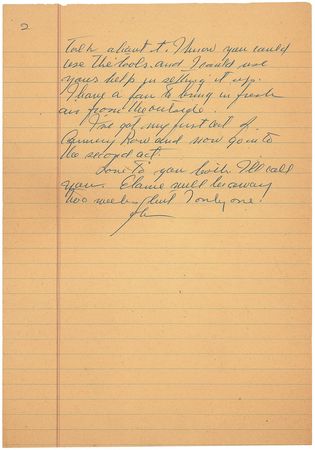 2
talk about it. I know you could
use the tools and I could use
your help in setting it up.
I have a fan to bring in fresh
air from the outside.
I've got my first act of
Cannery Row and now go in to
the second act.
Love to you both. I'll call
you. Elaine will be away
two weeks but I only one.